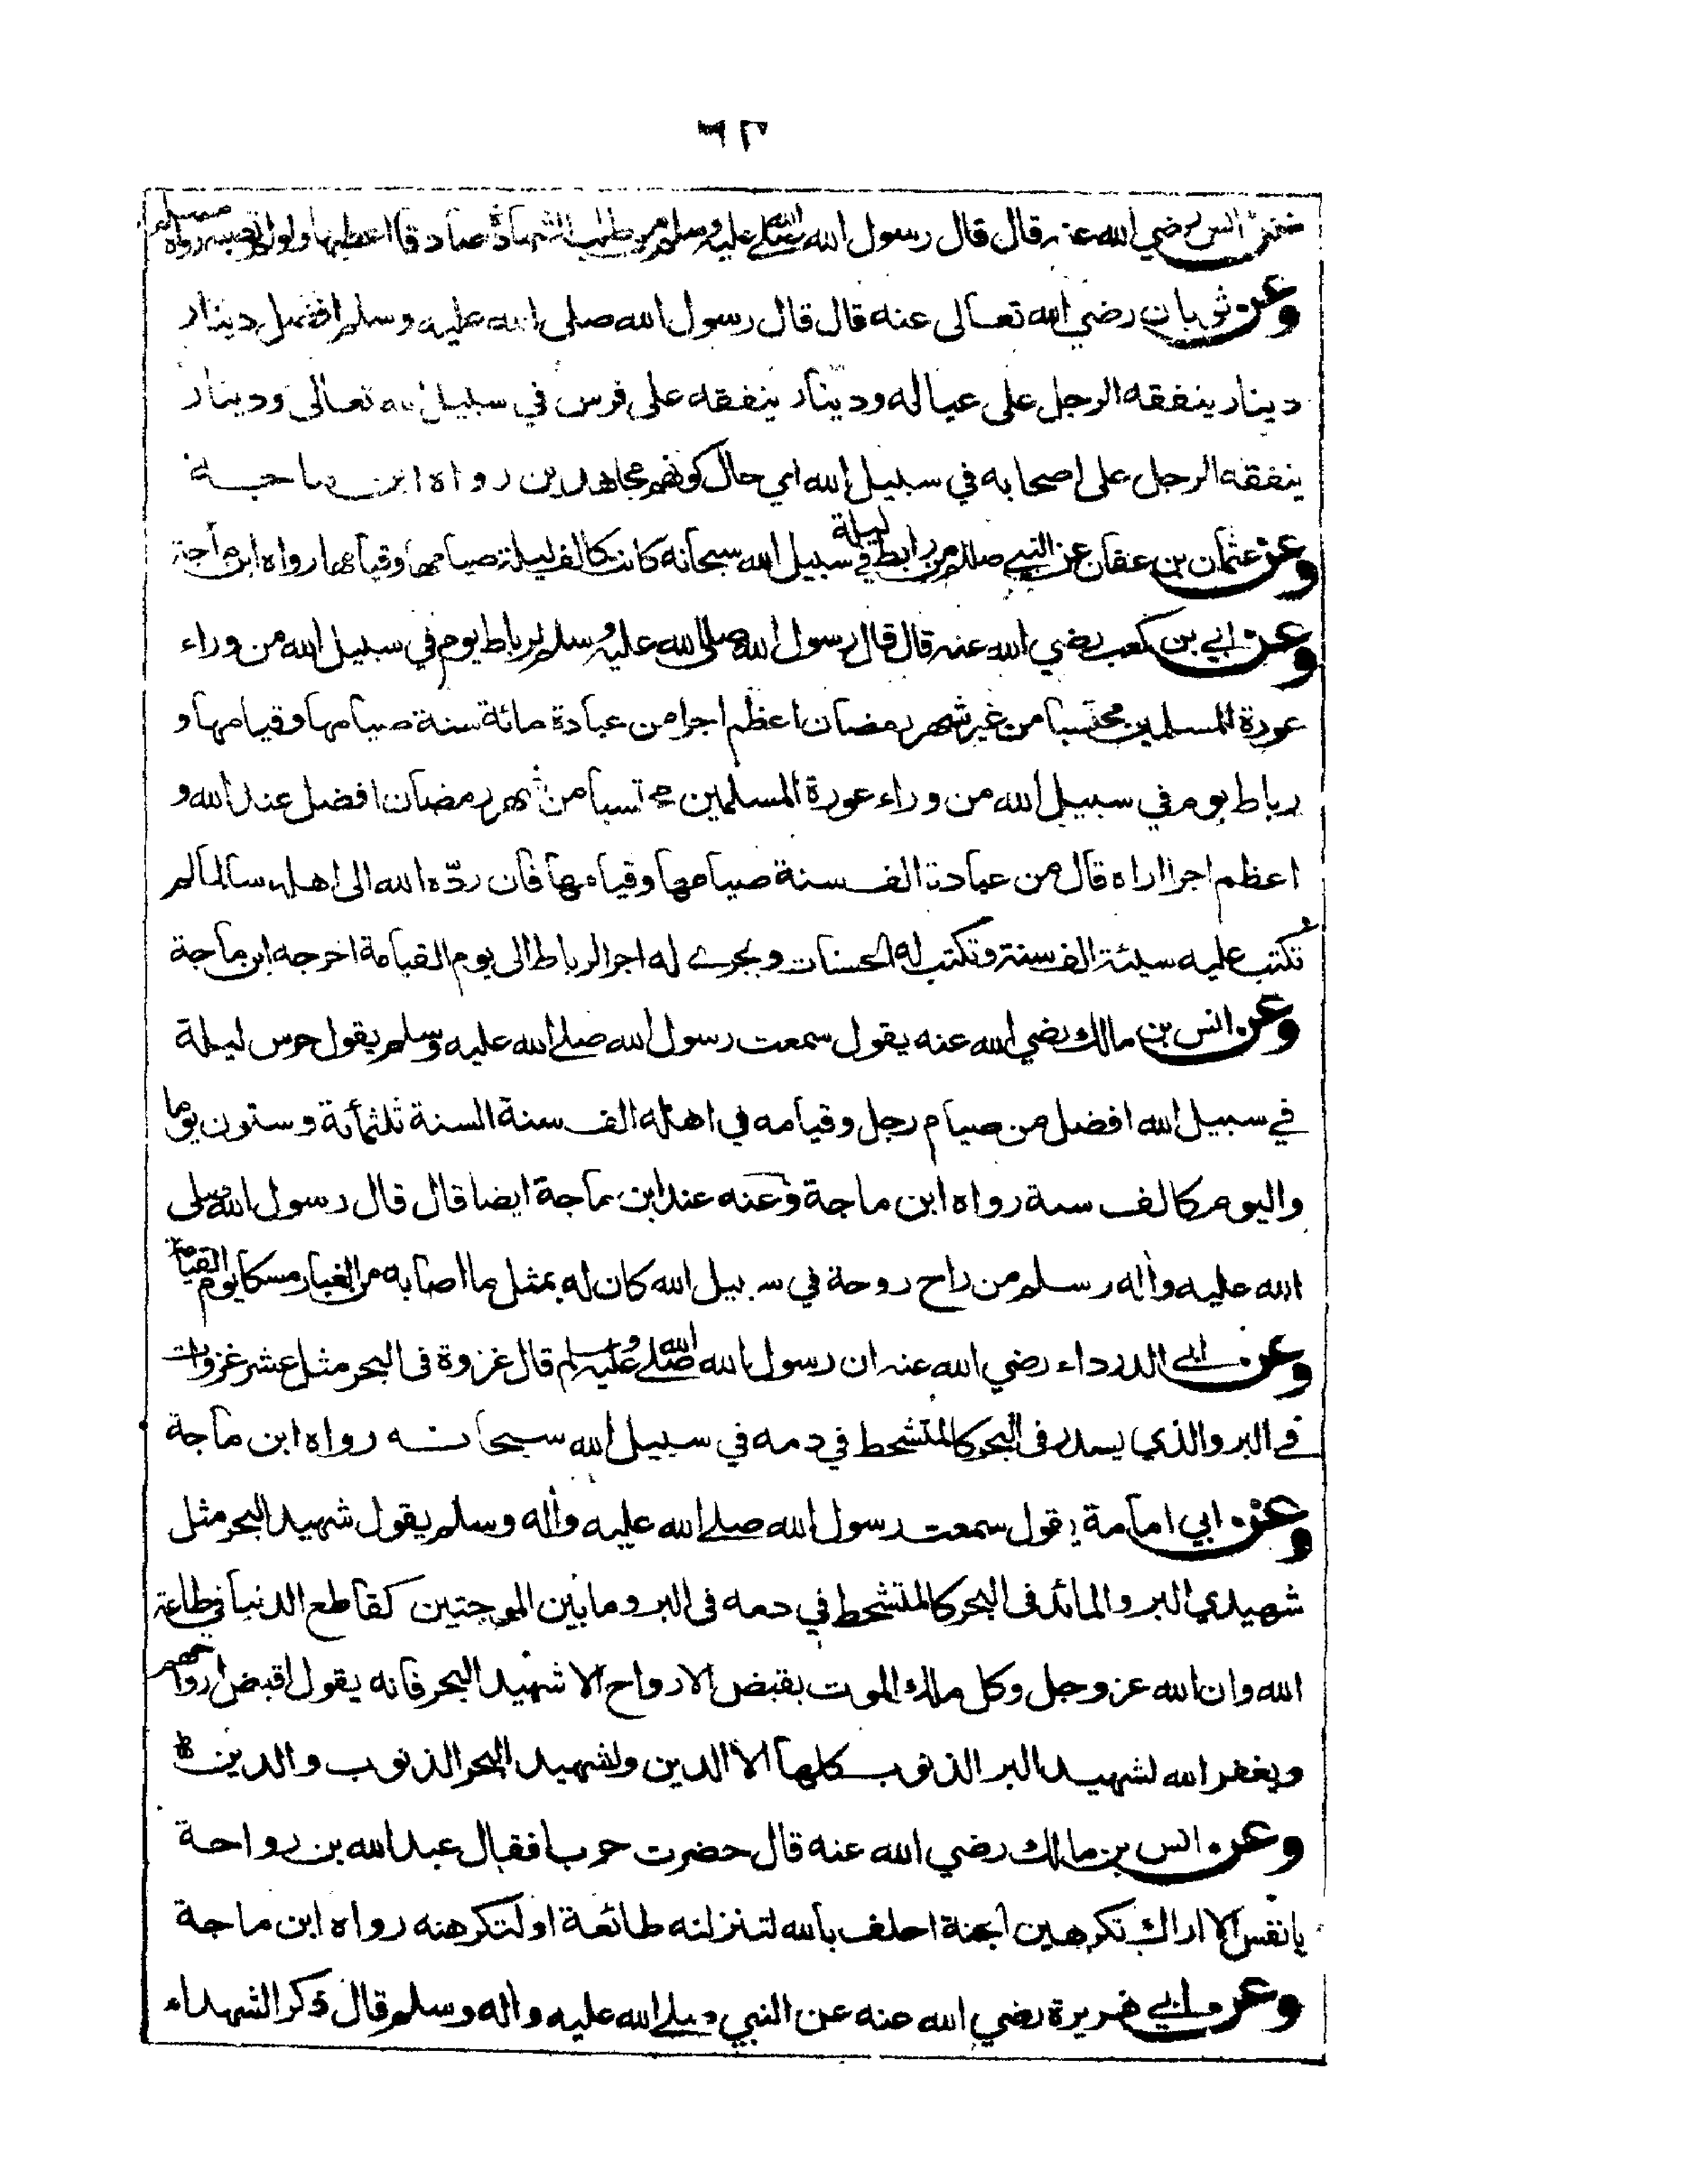 ٦٢
فعن انس رضي الله عنه قال قال رسول الله صلى الله عليه وسلم من طلب الشهادة صادقا اعطيها ولو لم تصبه رواه مسلم
وعن ثوبان رضي الله تعالى عنه قال قال رسول الله صلى الله عليه وسلم افضل دينار
دينار ينفقه الرجل على عياله ودينار ينفقه على فرس في سبيل الله تعالى ودينار
ينفقه الرجل على اصحابه في سبيل الله اي حال كونهم مجاهدين رواه ابن ماجة
وعن عثمان بن عفان عن النبي صللم من رابط ليلة في سبيل الله سبحانه كانت كالف ليلة صيامها وقيامها رواه ابن ماجة
وعن ابي بن كعب رضي الله عنه قال قال رسول الله صلى الله عليه وسلم لرباط يوم في سبيل الله من وراء
عورة المسلمين محتسبا من غير شهر رمضان اعظم اجرا من عبادة مائة سنة صيامها وقيامها و
رباط يوم في سبيل الله من وراء عورة المسلمين محتسبا من شهر رمضان افضل عند الله و
اعظم اجرا اراه قال من عبادة الف سنة صيامها وقيامها فان ردّه الله الى اهله سالما لم
تكتب عليه سيئة الف سنة وتكتب له الحسنات ويجرے له اجر الرباط الى يوم القيامة اخرجه ابن ماجة
وعن انس بن مالك رضي الله عنه يقول سمعت رسول الله صلے الله عليه وسلم يقول حرس ليلة
في سبيل الله افضل من صيام رجل وقيامه في اهله الف سنة السنة ثلثمائة وستون يوما
واليوم كالف سنة رواه ابن ماجة وعنه عند ابن ماجة ايضا قال قال رسول الله صلى
الله عليه واله وسلم من راح روحة في سبيل الله كان له بمثل ما اصابه من الغبار مسكا يوم القيامة
وعن ابي الدرداء رضي الله عنه ان رسول الله صلے الله عليه وسلم قال غزوة فى البحر مثل عشر غزوات
فے البر والذي يسدر فى البحر كالمتشحط في دمه في سبيل الله سبحانه رواه ابن ماجة
وعن ابي امامة يقول سمعت رسول الله صلے الله عليه واله وسلم يقول شهيد البحر مثل
شهيدي البر والمائد فى البحر كالمتشحط في دمه فى البر وما بين الموجتين كقاطع الدنيا في طاعة
الله وان الله عز وجل وكل ملك الموت بقبض الارواح الا شهيد البحر فانه يقول اقبض ارواحهم
ويغفر الله لشهيد البر الذنوب كلها الا الدين ولشهيد البحر الذنوب والدين
وعن انس بن مالك رضي الله عنه قال حضرت حربا فقال عبد الله بن رواحة
يا نفس الا اراك تكرهين الجنة احلف بالله لتنزلنه طائعة او لتكرهنه رواه ابن ماجة
وعن ابي هريرة رضي الله عنه عن النبي صلے الله عليه واله وسلم قال ذكر الشهداء